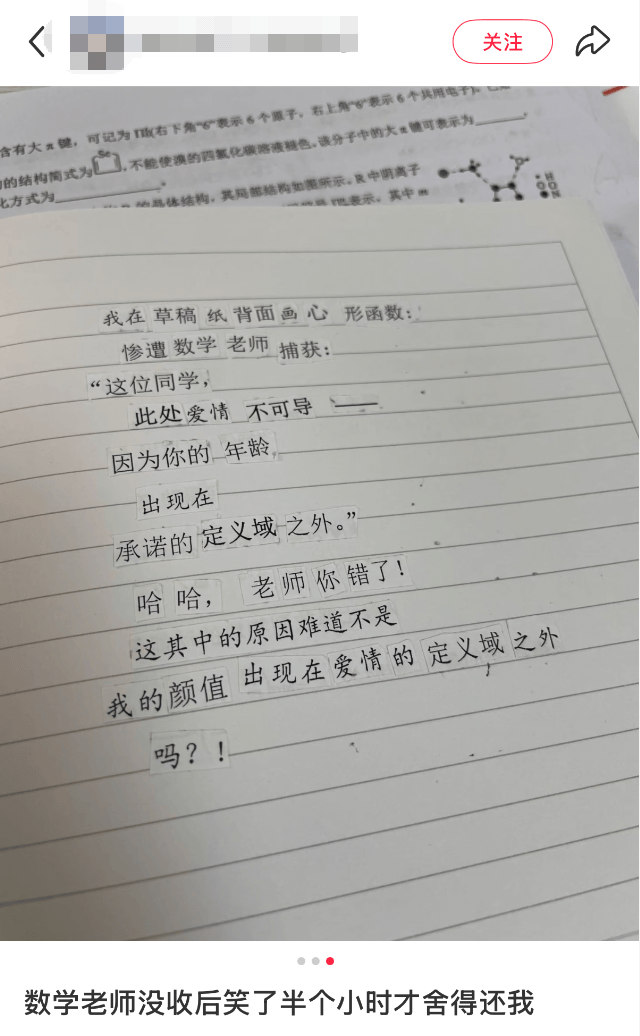 关注
含有大π键，可记为Π(右下角“6”表示6个原子，右上角“6”表示6个共用电子)。
的结构简式为
Se
，不能使溴的四氯化碳溶液褪色。该分子中的大π键可表示为
化方式为
的晶体结构，其局部结构如图所示。R中阴离子
表示，其中m
我在草稿纸背面画心形函数：
惨遭数学老师捕获：
“这位同学，
此处爱情不可导——
因为你的年龄
出现在
承诺的定义域之外。”
哈哈，老师你错了！
这其中的原因难道不是
我的颜值出现在爱情的定义域之外
，
吗？！
数学老师没收后笑了半个小时才舍得还我